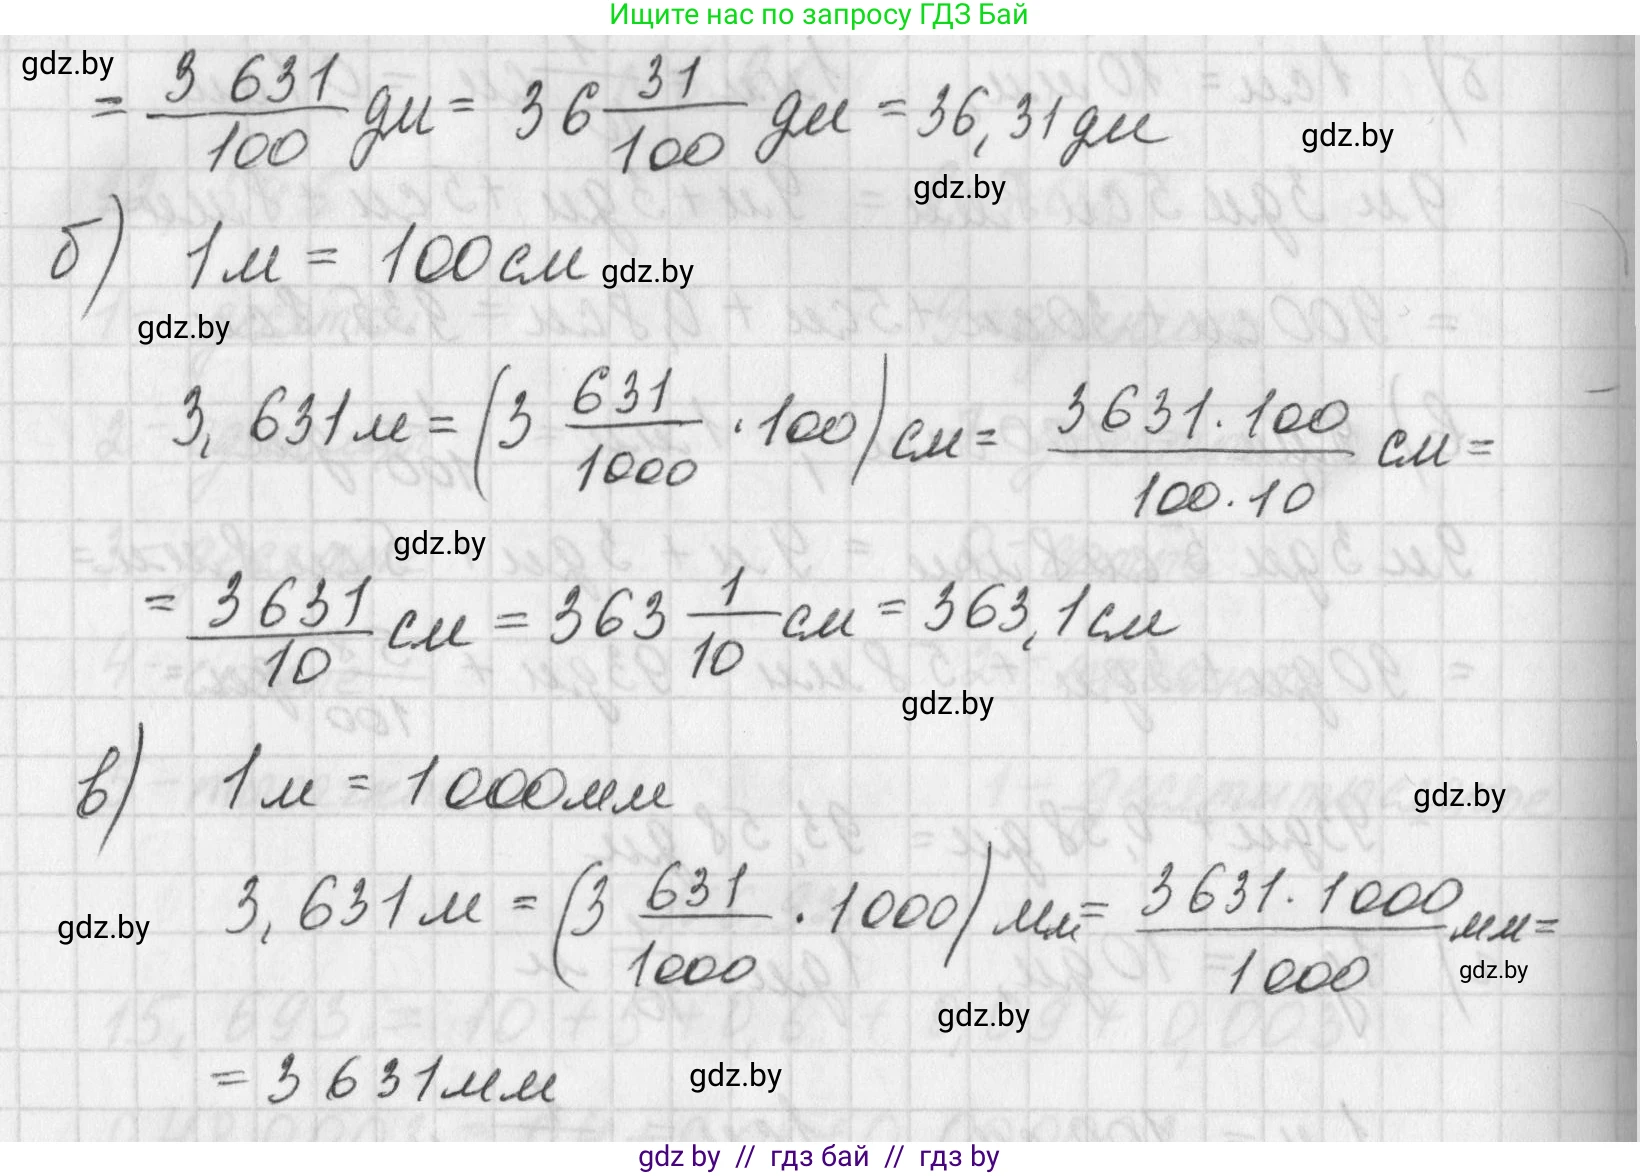 Ищите нас по запросу ГДЗ Бай
gdz.by
= 3 631/100 дм = 36 31/100 дм = 36,31 дм
gdz.by
gdz.by
б) 1 м = 100 см
gdz.by
gdz.by
3,631 м = (3 631/1000 · 100) см = 3 631 · 100/100 · 10 см =
gdz.by
= 3 631/10 см = 363 1/10 см = 363,1 см
gdz.by
в) 1 м = 1 000 мм
gdz.by
3,631 м = (3 631/1000 · 1000) мм = 3 631 · 1 000/1 000 мм =
gdz.by
gdz.by
gdz.by
= 3 631 мм
gdz.by
gdz by // гдз бай // гдз by